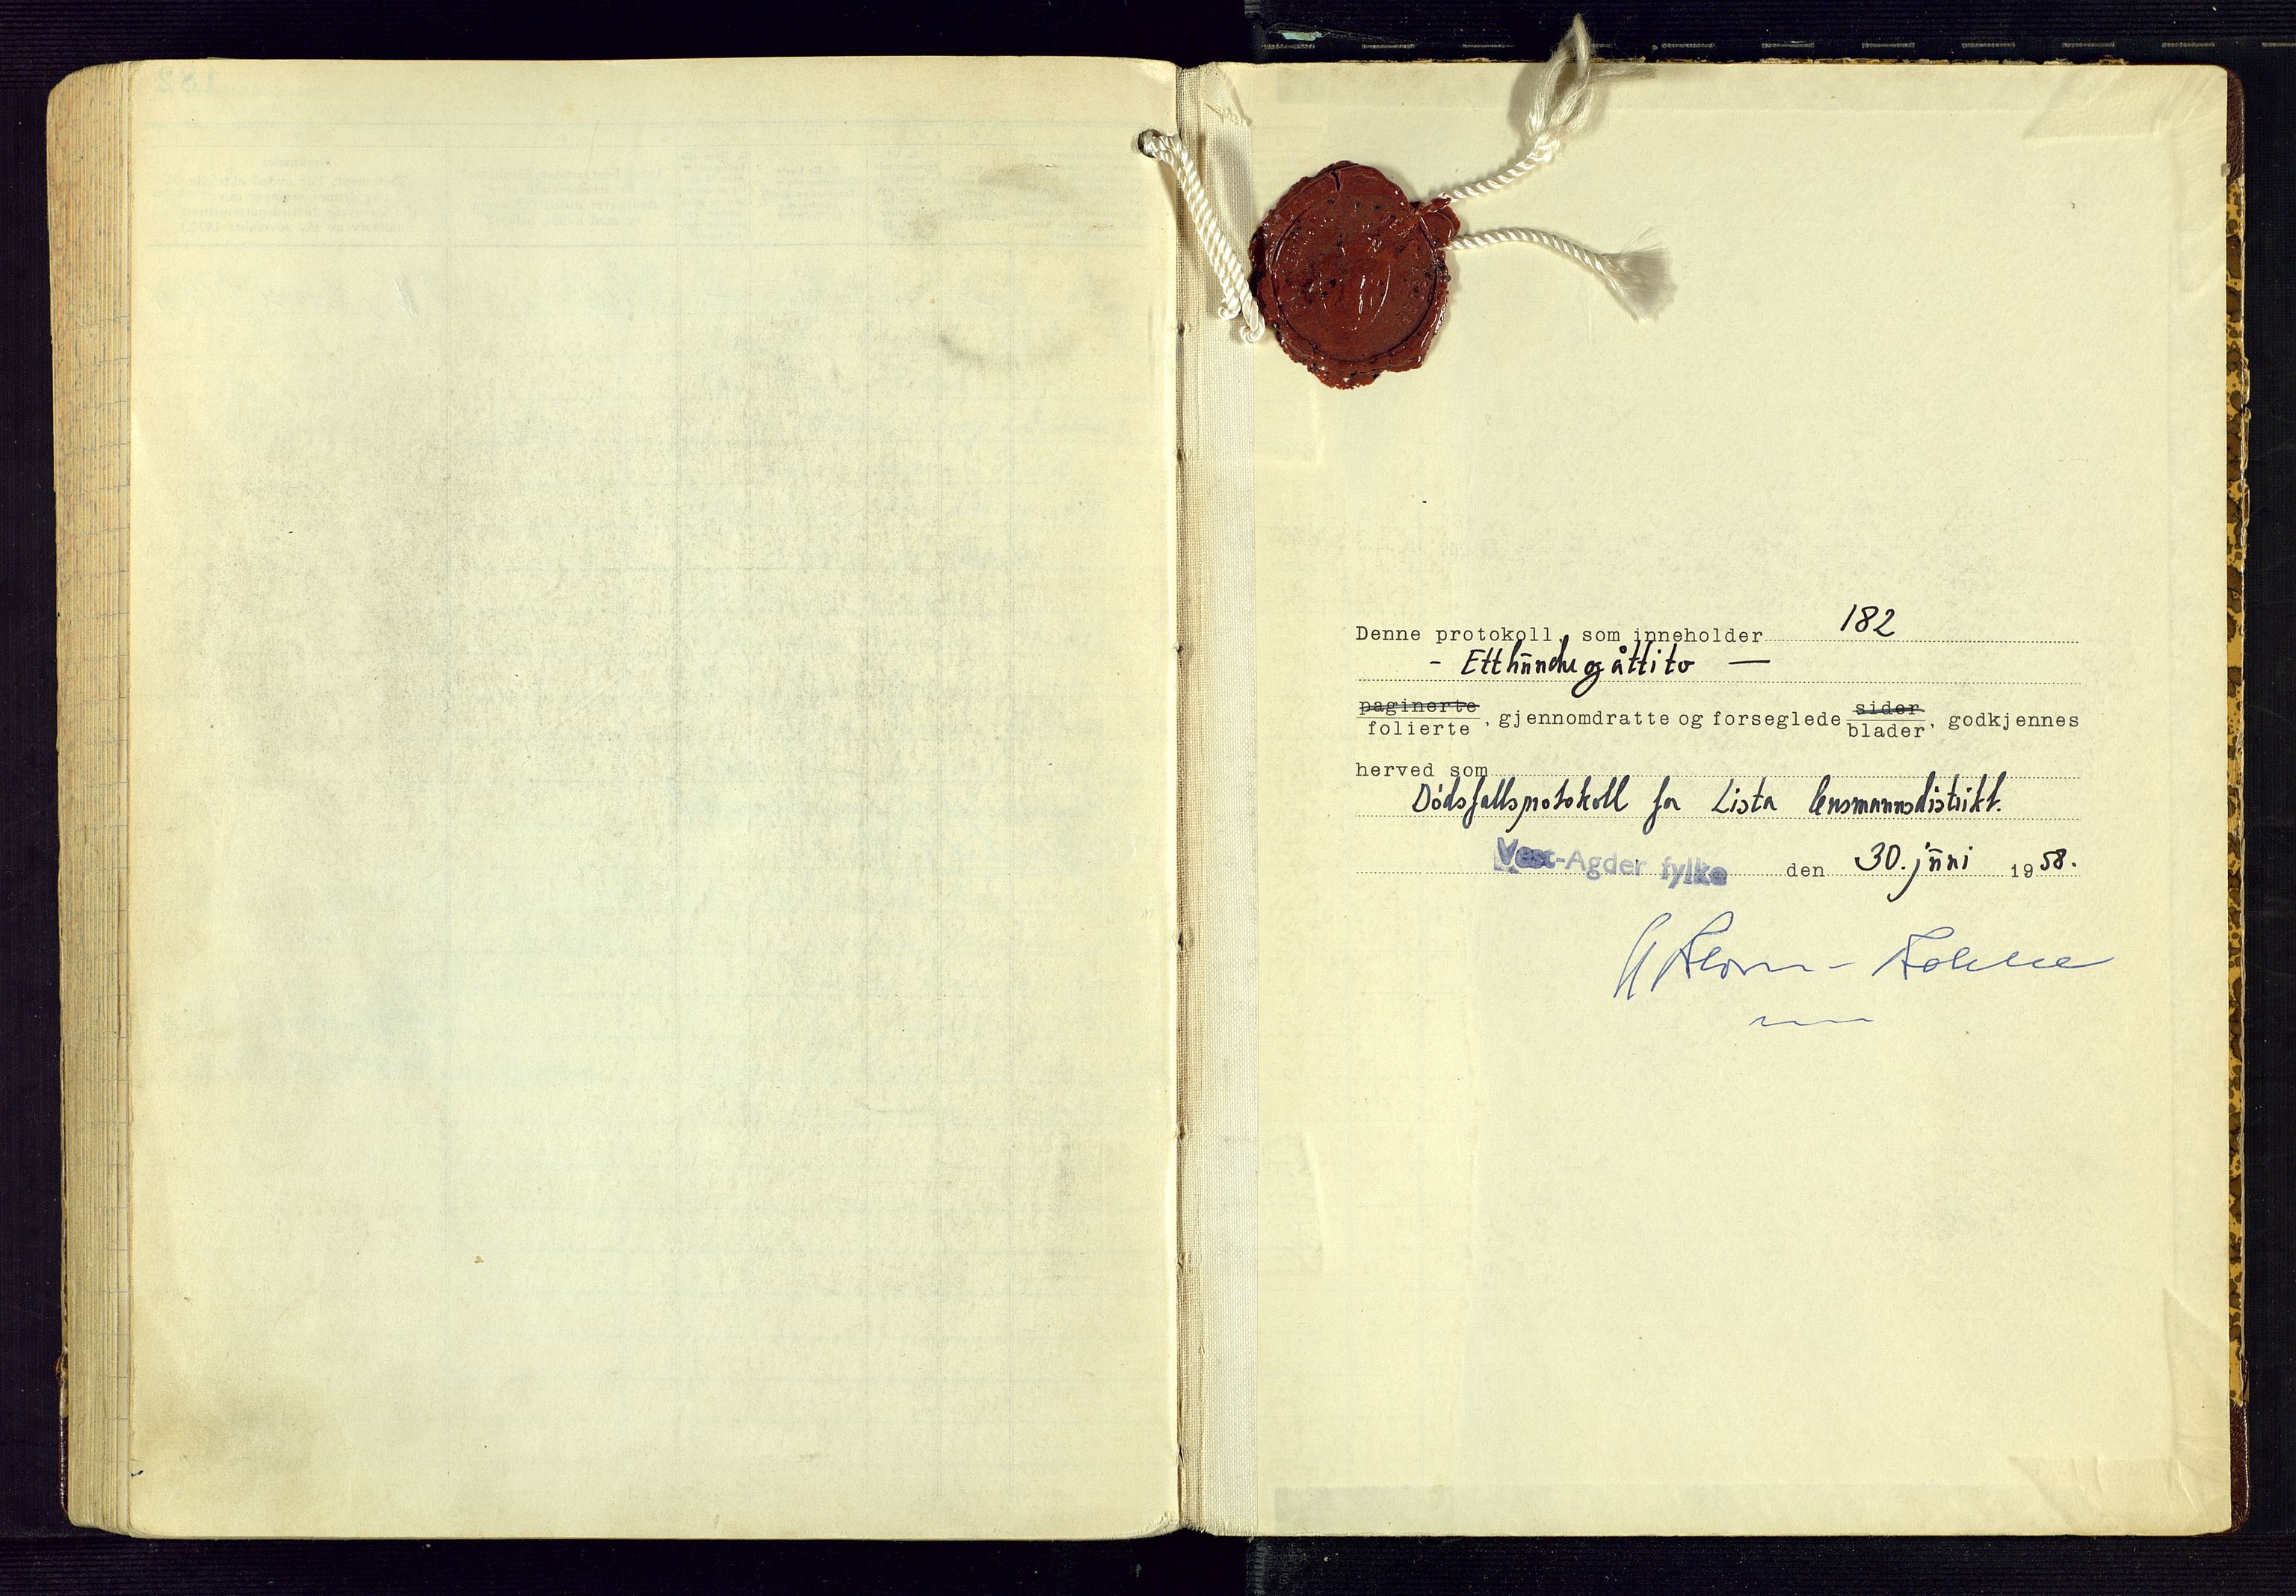 Denne protokoll, som inneholder 182
- Etthundre og åttito —
paginerte
folierte, gjennomdratte og forseglede sider
blader, godkjennes
herved som
Dødsfallsprotokoll for Lista lensmannsdistrikt.
Vest-Agder fylke den 30. juni 1958.